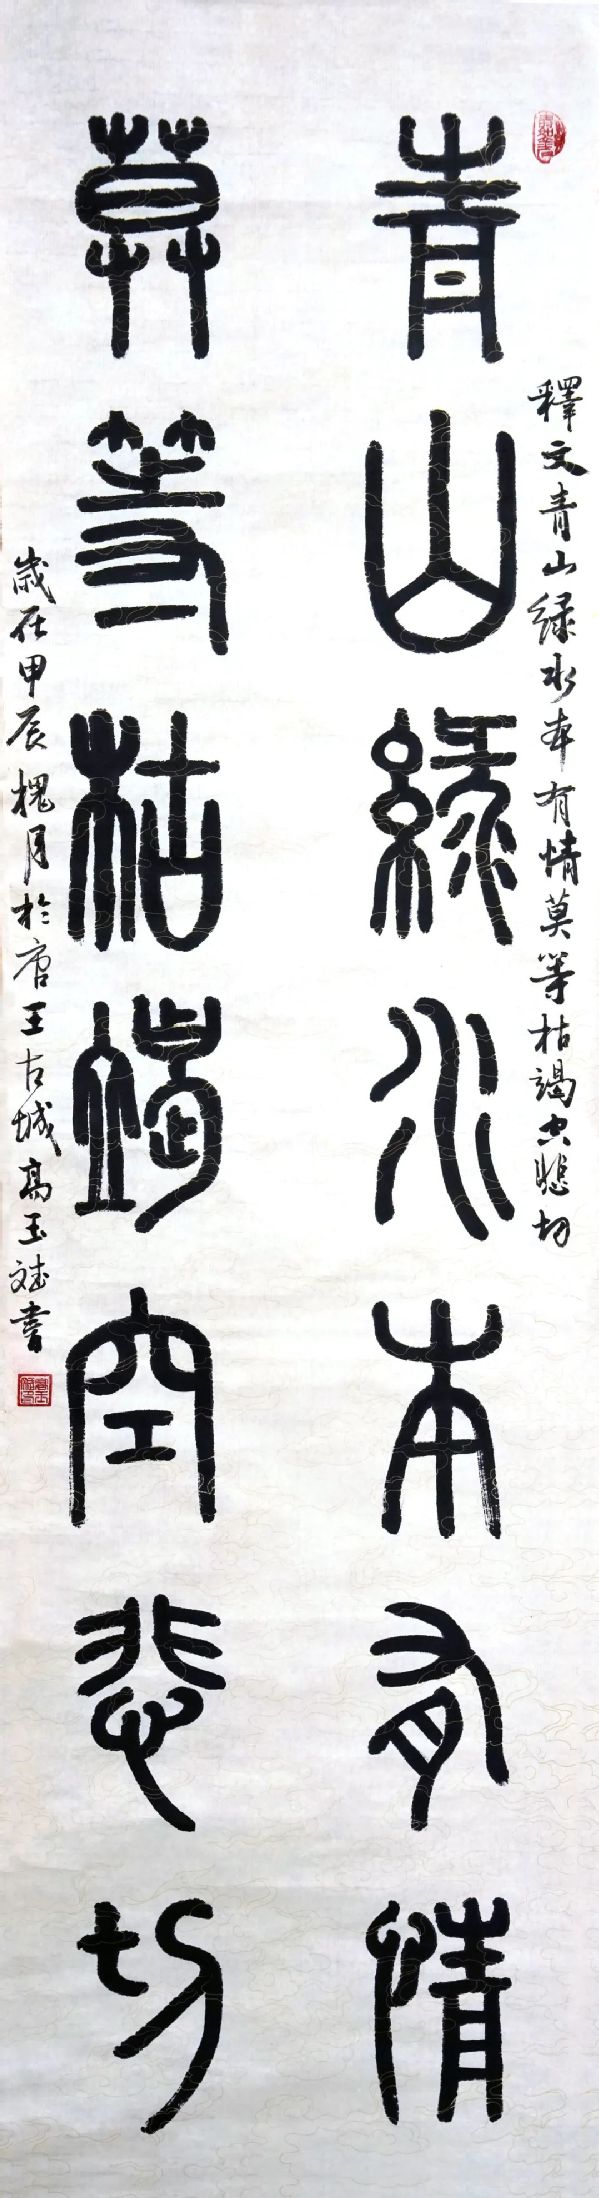 青山綠水本有情
莫等枯竭空悲切
釋文青山綠水本有情莫等枯竭空悲切
歲在甲辰槐月於唐王古城高玉斌書